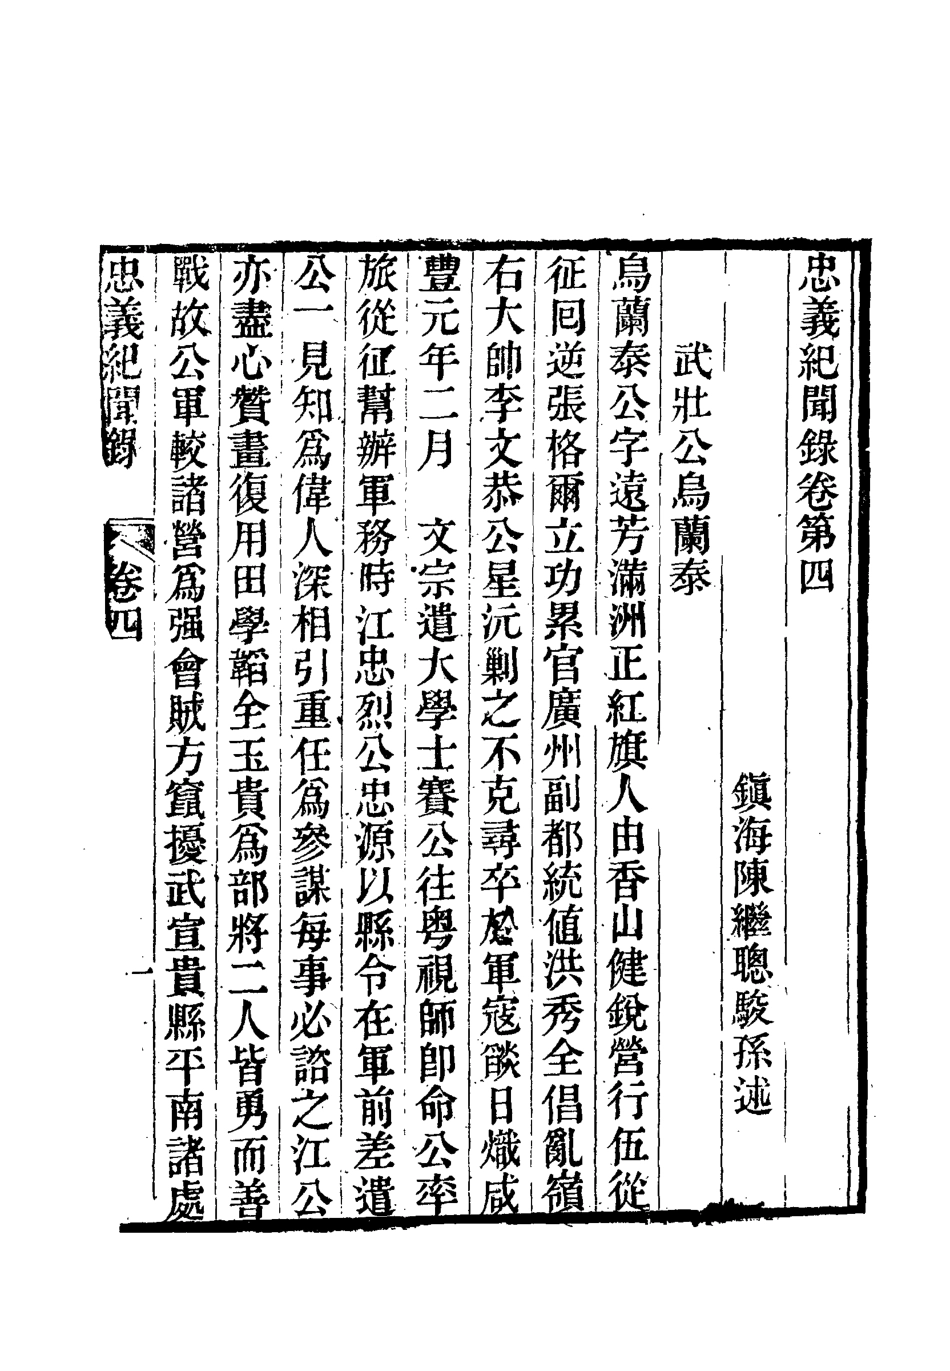 忠義紀聞錄卷第四
鎮海陳繼聰駿孫述
武壯公烏蘭泰
烏蘭泰公字遠芳滿洲正紅旗人由香山健銳營行伍從
征回逆張格爾立功累官廣州副都統值洪秀全倡亂嶺
右大帥李文恭公星沅剿之不克尋卒於軍寇燄日熾咸
豐元年二月　文宗遣大學士賽公往粤視師卽命公率
旅從征幫辦軍務時江忠烈公忠源以縣令在軍前差遣
公一見知爲偉人深相引重任爲參謀每事必諮之江公
亦盡心贊畫復用田學韜全玉貴爲部將二人皆勇而善
戰故公軍較諸營爲强會賊方竄擾武宣貴縣平南諸處
忠義紀聞錄　卷四　一